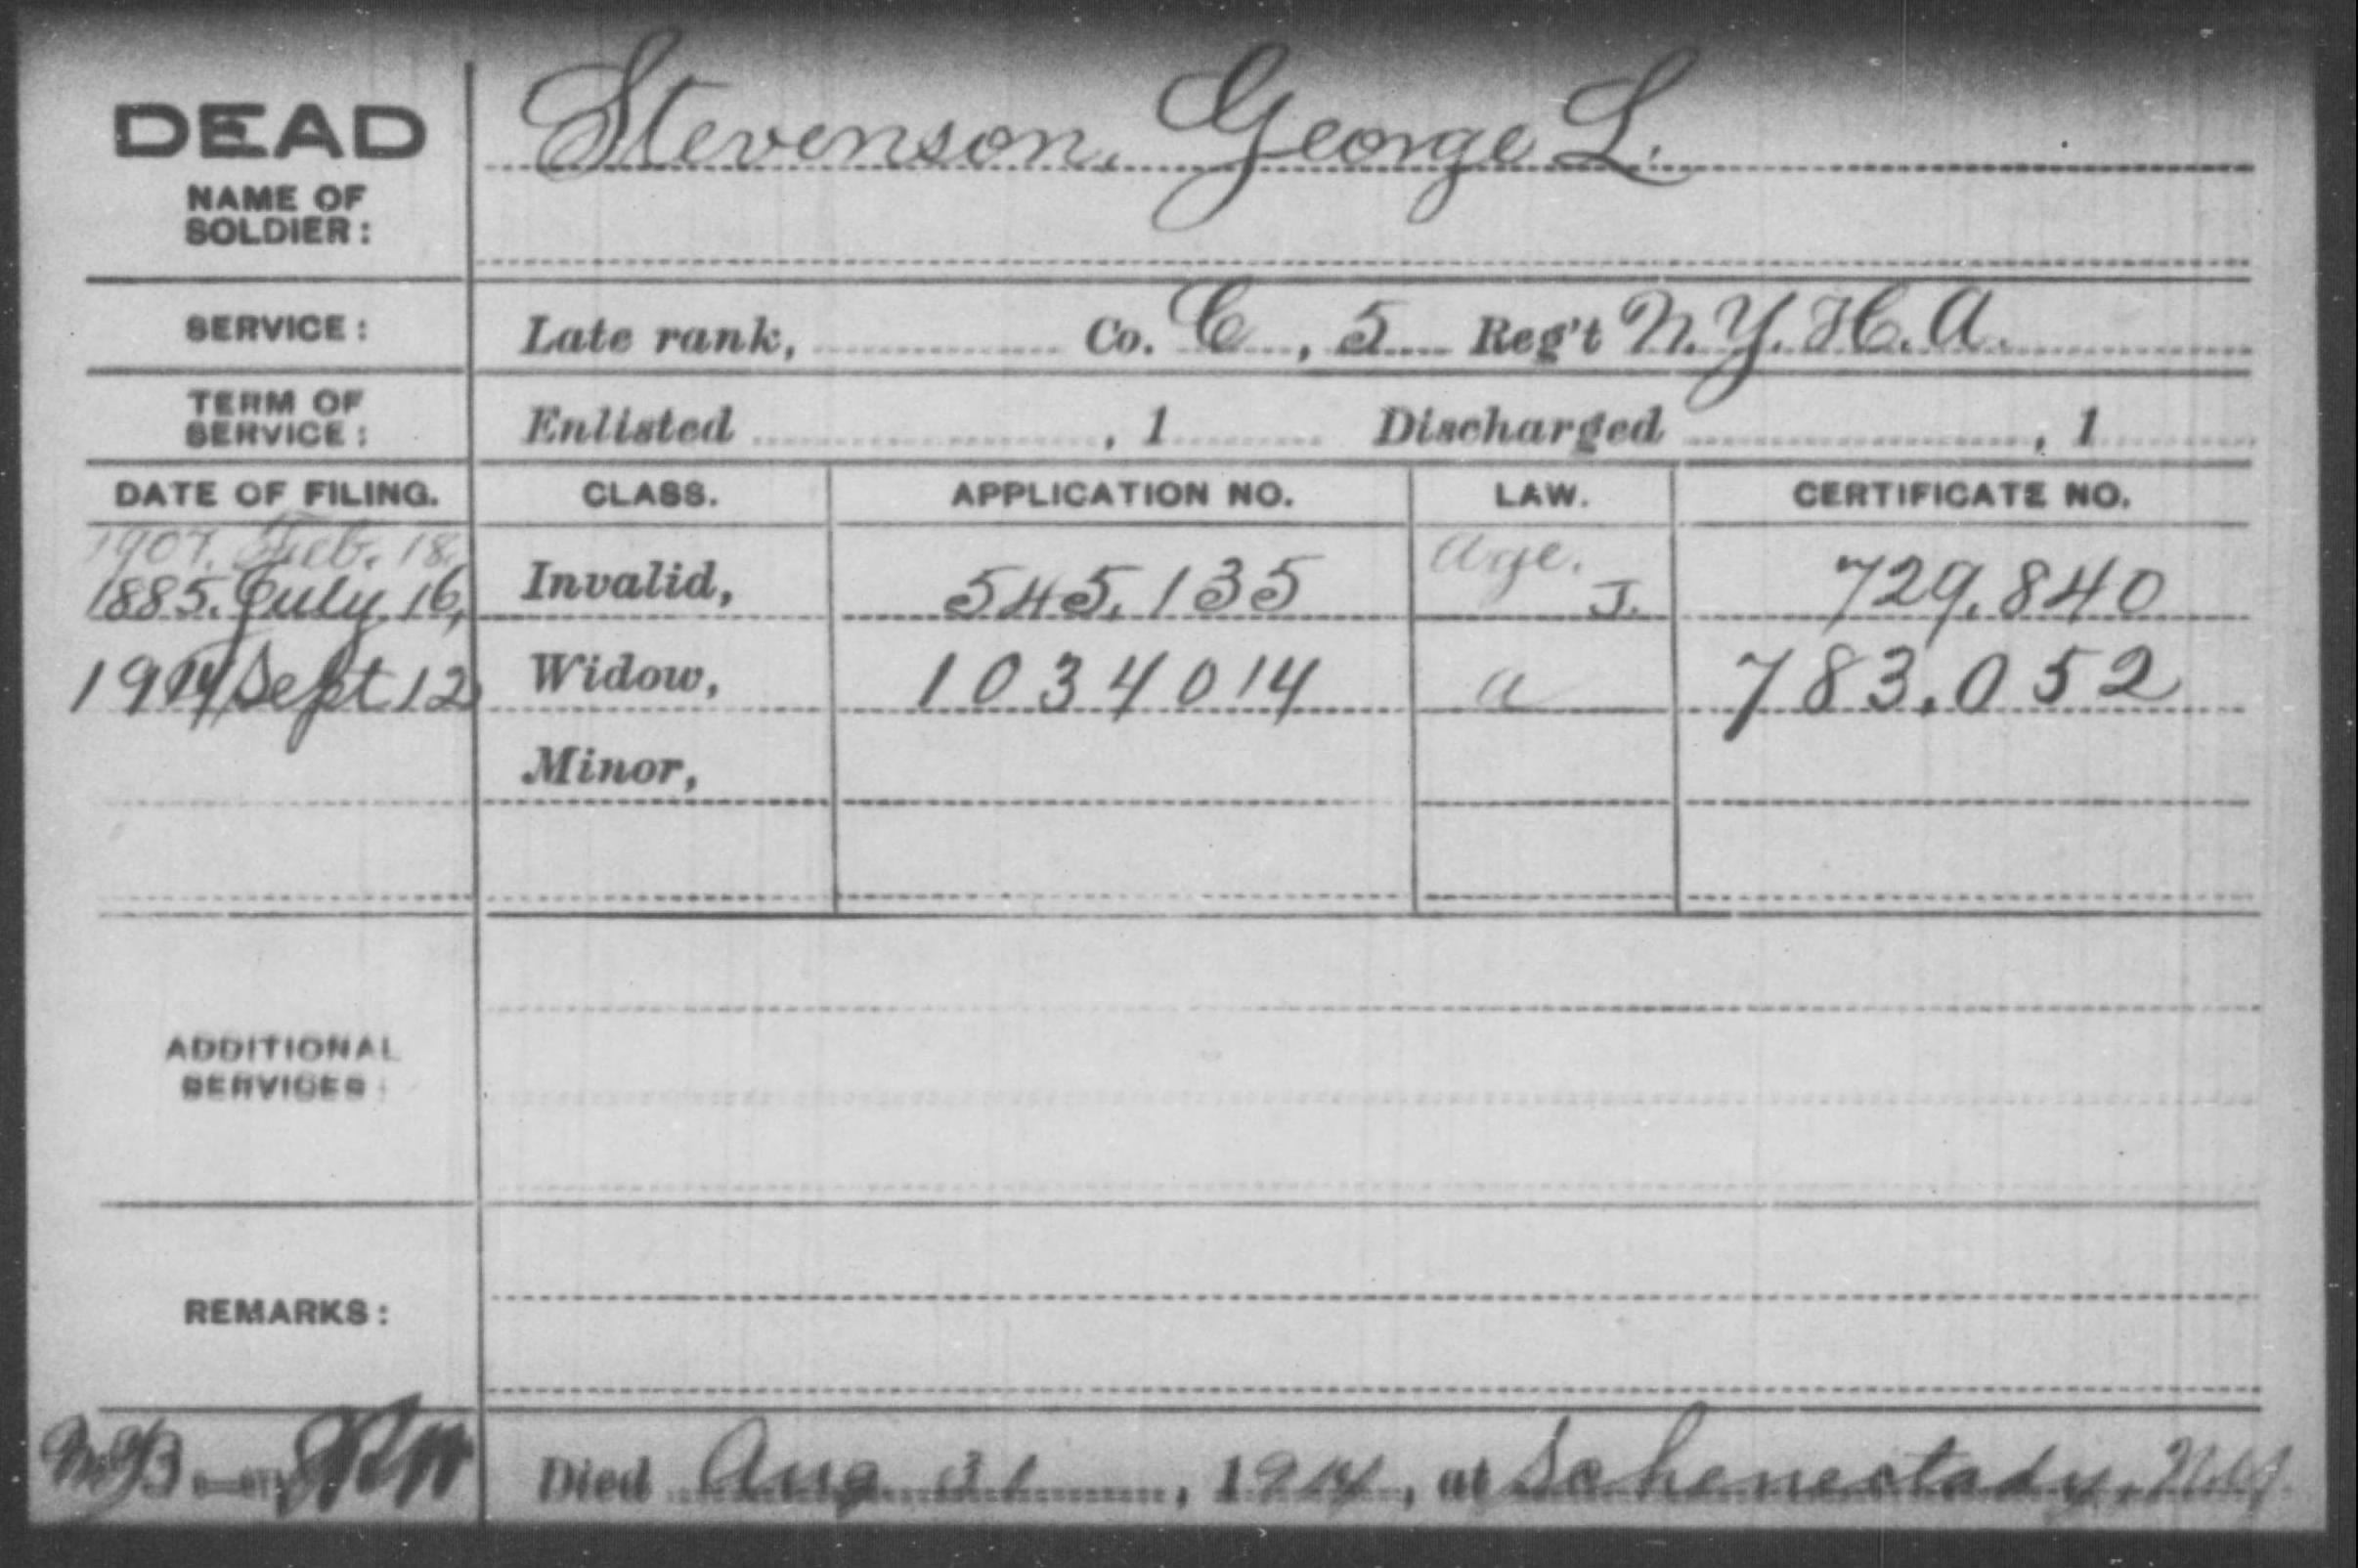 DEAD
Stevenson, George L.
NAME OF
SOLDIER:
SERVICE: Late rank, Co. C, 5 Reg't N.Y.H.A.
TERM OF
SERVICE: Enlisted , 1 Discharged , 1
DATE OF FILING. CLASS. APPLICATION NO. LAW. CERTIFICATE NO.
1907. Feb. 18. Age.
1885. July 16, Invalid, 545,135 J. 729,840
1914 Sept 12 Widow, 1034014 a 783,052
Minor,
ADDITIONAL
SERVICES:
REMARKS:
Died Aug 31, 1914, at Schenectady, N.Y.